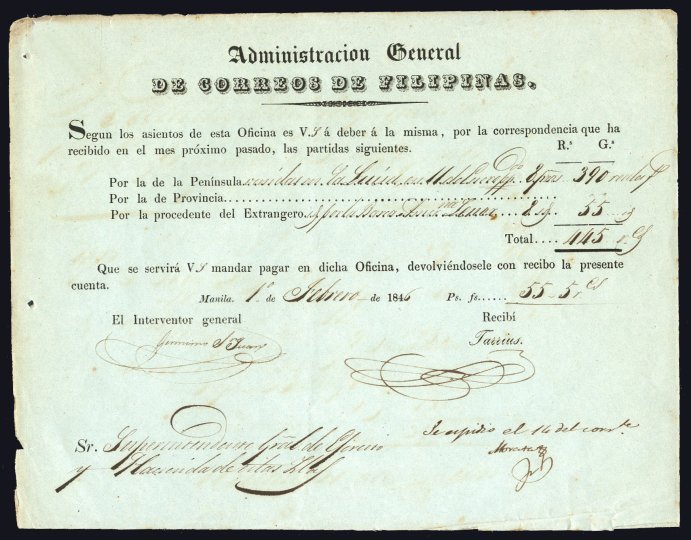 Administracion General
DE CORREOS DE FILIPINAS.
Segun los asientos de esta Oficina es V.S á deber á la misma, por la correspondencia que ha
recibido en el mes próximo pasado, las partidas siguientes.
R.s G.s
Por la de la Península venidas en la en 11 de Enero 390
Por la de Provincia
Por la procedente del Extrangero 35
Total.... 445 r.s
Que se servirá V.S mandar pagar en dicha Oficina, devolviéndosele con recibo la presente
cuenta.
Manila. 1.o de Febrero de 1846 Ps. fs...... 55 5 r.s
El Interventor general
Recibí
Geronimo S. Juan
Tarrius.
Se espidio el 14 del corr.te
Sr. Superintendente Gral. de
y Hacienda de estas Yslas